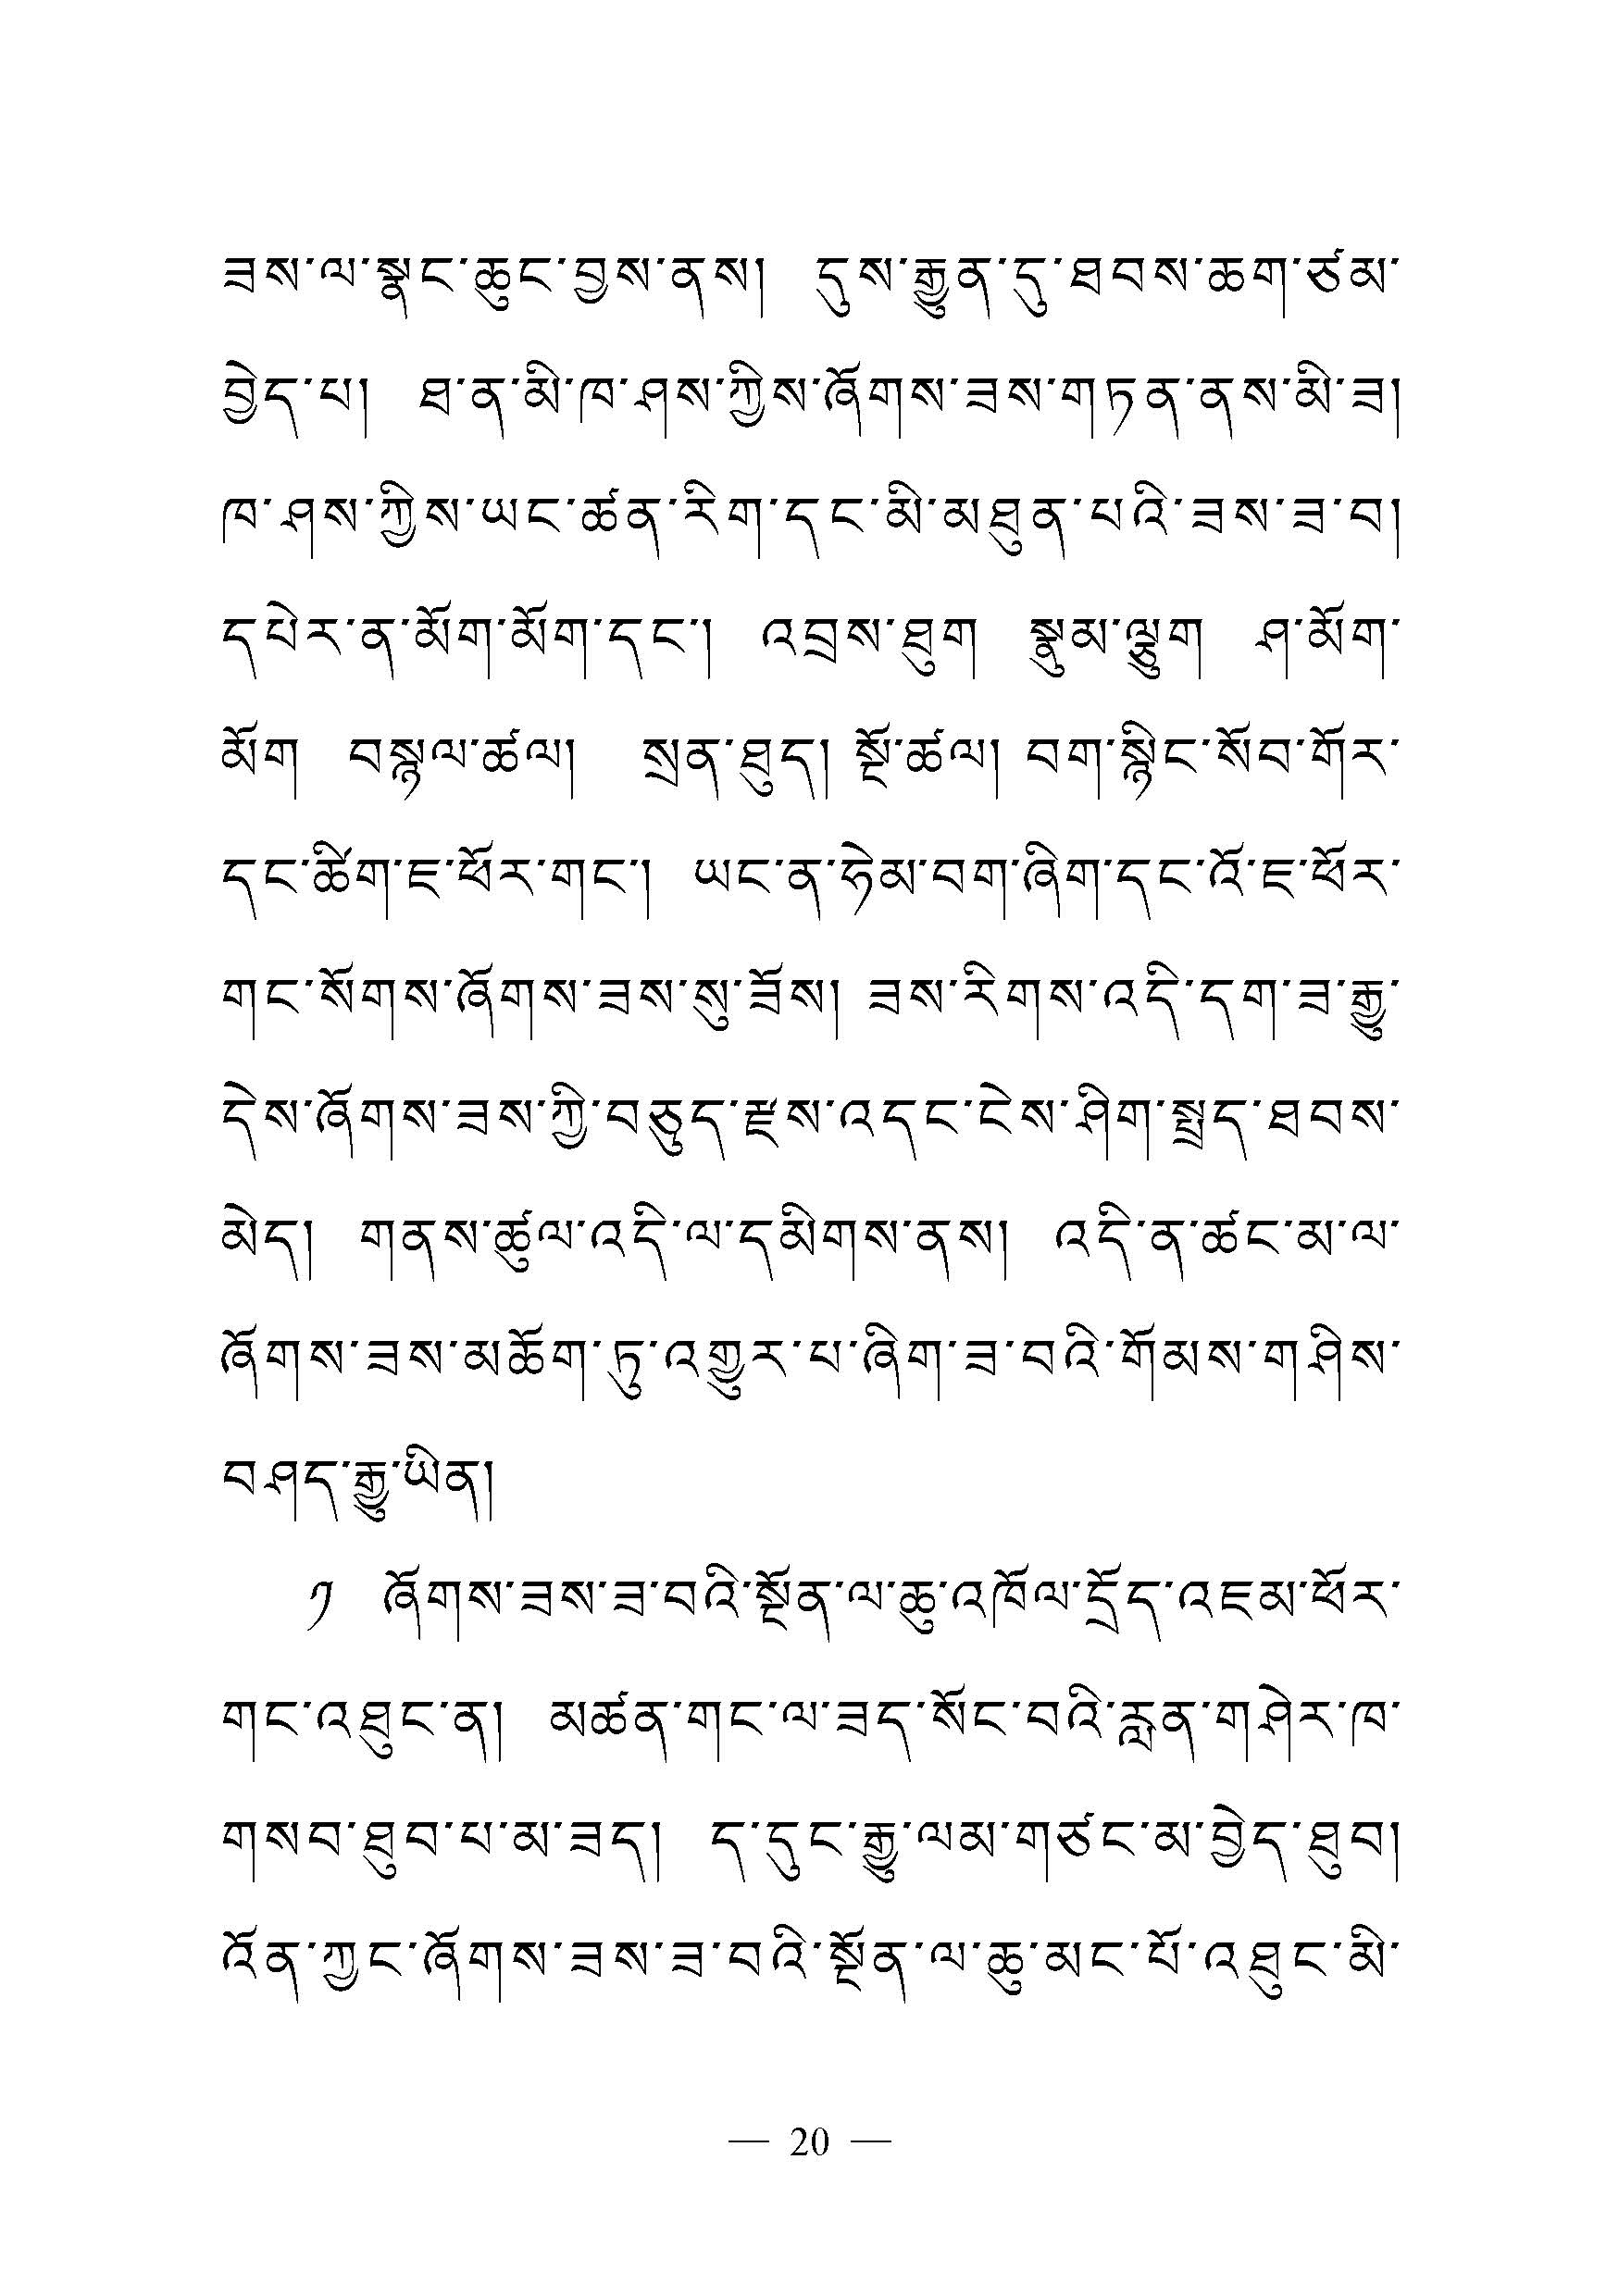 ཟས་ལ་སྣང་ཆུང་བྱས་ནས། དུས་རྒྱུན་དུ་ཐབས་ཆག་ཙམ་
བྱེད་པ། ཐ་ན་མི་ཁ་ཤས་ཀྱིས་ཞོགས་ཟས་གཏན་ནས་མི་ཟ།
ཁ་ཤས་ཀྱིས་ཡང་ཚན་རིག་དང་མི་མཐུན་པའི་ཟས་ཟ་བ།
དཔེར་ན་མོག་མོག་དང་། འབྲས་ཐུག སྣུམ་ལྕུག ཤ་མོག་
མོག བསྙལ་ཚལ། སྲན་ཐུད། སྔོ་ཚལ། བག་སྙིང་སོབ་གོར་
དང་ཚིག་ཇ་ཕོར་གང་། ཡང་ན་ཧེམ་བག་ཞིག་དང་འོ་ཇ་ཕོར་
གང་སོགས་ཞོགས་ཟས་སུ་ཟོས། ཟས་རིགས་འདི་དག་ཟ་རྒྱུ་
དེས་ཞོགས་ཟས་ཀྱི་བཅུད་རྫས་འདང་ངེས་ཤིག་སྤྲད་ཐབས་
མེད། གནས་ཚུལ་འདི་ལ་དམིགས་ནས། འདི་ན་ཚང་མ་ལ་
ཞོགས་ཟས་མཆོག་ཏུ་འགྱུར་པ་ཞིག་ཟ་བའི་གོམས་གཤིས་
བཤད་རྒྱུ་ཡིན།
༡ ཞོགས་ཟས་ཟ་བའི་སྔོན་ལ་ཆུ་འཁོལ་དྲོད་འཇམ་ཕོར་
གང་འཐུང་ན། མཚན་གང་ལ་ཟད་སོང་བའི་རླན་གཤེར་ཁ་
གསབ་ཐུབ་པ་མ་ཟད། ད་དུང་རྒྱུ་ལམ་གཙང་མ་བྱེད་ཐུབ།
འོན་ཀྱང་ཞོགས་ཟས་ཟ་བའི་སྔོན་ལ་ཆུ་མང་པོ་འཐུང་མི་
— 20 —